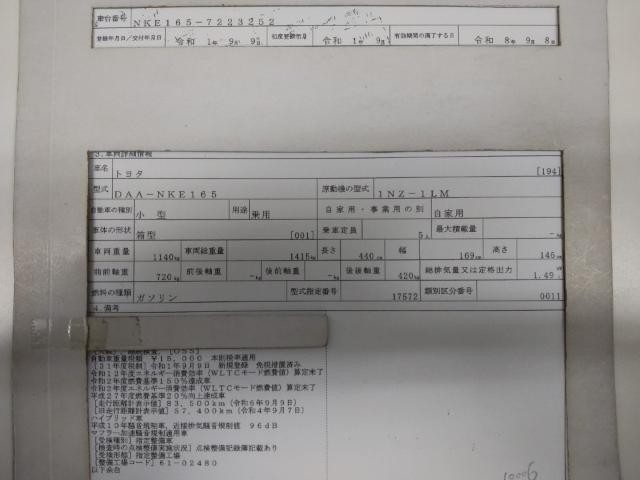 車台番号 NKE165-7223252
登録年月日／交付年月日 令和 1年 9月 9日 初度登録年月 令和 1年 9月 有効期間の満了する日 令和 8年 9月 8日
3. 車両詳細情報
車名 トヨタ [194]
型式 DAA-NKE165 原動機の型式 1NZ-1LM
自動車の種別 小型 用途 乗用 自家用・事業用の別 自家用
車体の形状 箱型 [001] 乗車定員 5人 最大積載量 -kg
車両重量 1140kg 車両総重量 1415kg 長さ 440cm 幅 169cm 高さ 146cm
前前軸重 720kg 前後軸重 -kg 後前軸重 -kg 後後軸重 420kg 総排気量又は定格出力 1.49
燃料の種類 ガソリン 型式指定番号 17572 類別区分番号 0011
4. 備考
継続検査, [OSS]
自動車重量税額 ￥15,000 本則税率適用
[31年度税制] 令和1年9月9日 新規登録 免税措置済み
令和12年度エネルギー消費効率(WLTCモード燃費値)算定未了
令和2年度燃費基準150%達成車
令和2年度エネルギー消費効率(WLTCモード燃費値)算定未了
平成27年度燃費基準20%向上達成車
[走行距離計表示値] 83,500km(令和6年9月9日)
[旧走行距離計表示値] 57,400km(令和4年9月7日)
ハイブリッド車
平成10年騒音規制車, 近接排気騒音規制値 96dB
マフラー加速騒音規制適用車
[受検種別] 指定整備車
[検査時の点検整備実施状況] 点検整備記録簿記載あり
[受検形態] 指定整備工場
[整備工場コード] 61-02480
以下余白